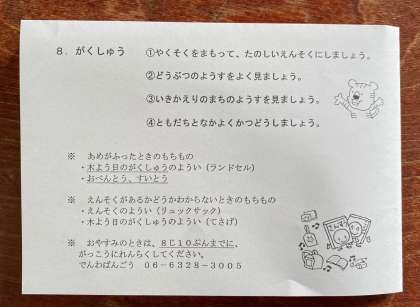 8．がくしゅう　①やくそくをまもって、たのしいえんそくにしましょう。
②どうぶつのようすをよく見ましょう。
③いきかえりのまちのようすを見ましょう。
④ともだちとなかよくかつどうしましょう。
※　あめがふったときのもちもの
・木よう日のがくしゅうのようい（ランドセル）
・おべんとう、すいとう
※　えんそくがあるかどうかわからないときのもちもの
・えんそくのようい（リュックサック）
・木よう日のがくしゅうのようい（てさげ）
※　おやすみのときは、８じ１０ぷんまでに、
がっこうにれんらくしてください。
でんわばんごう　０６－６３２８－３００５